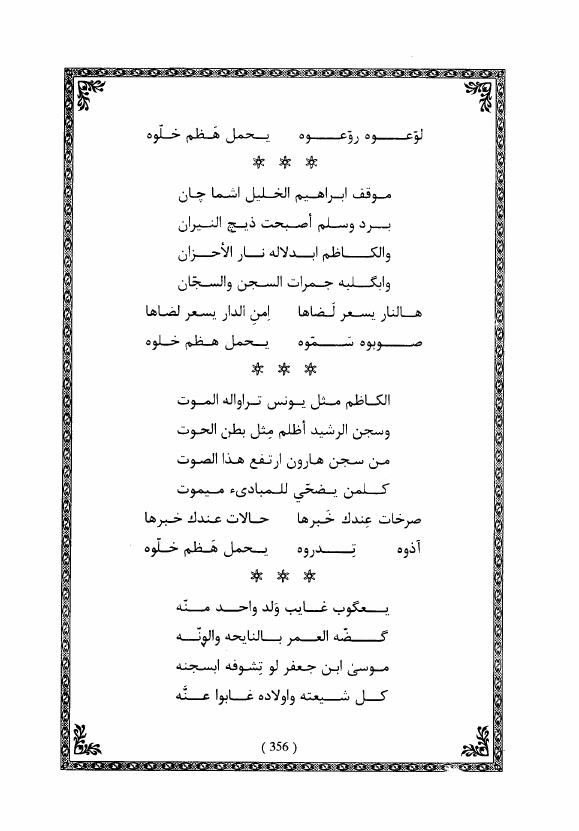 لوّعوه روّعوه يحمل هَظم خلّوه
* * *
موقف ابراهيم الخليل اشما چان
برد وسلم أصبحت ذيچ النيران
والكاظم ابدلاله نار الأحزان
وابگلبه جمرات السجن والسجّان
هالنار يسعر لَضاها اِمنِ الدار يسعر لضاها
صوبوه سَمّوه يحمل هظم خلوه
* * *
الكاظم مثل يونس تراواله الموت
وسجن الرشيد أظلم مِثل بطن الحوت
من سجن هارون ارتفع هذا الصوت
كلمن يضحّي للمبادىء ميموت
صرخات عِندك خَبرها حالات عندك خبرها
آذوه تِدروه يحمل هَظم خلّوه
* * *
يعگوب غايب وَلد واحد منّه
گضّه العمر بالنايحه والونّه
موسىٰ ابن جعفر لو تِشوفه ابسجنه
كل شيعته واولاده غابوا عنَّه
( 356 )